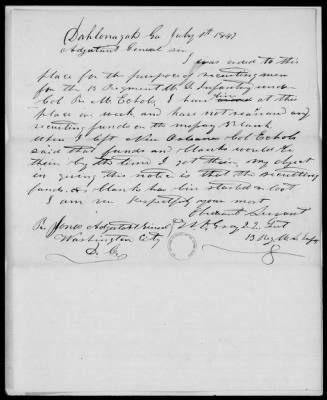 Dahlonegah Ga July 1st 1847
Adjutant General Sir
I was orded to this
place for the purpose of recruiting men
for the 13 Regiment U. S. Infantry under
Col R M Echols, I have bin at this
place on week and have not reaived any
recruiting funds or the Blank
when I left New Orleans Col Echols
said that funds and blanks would be
their by the time I got their, my object
in giving this notice is that the recruiting
funds & blanks has bin
I am ver respectfuly your most
Obediant Servent
R Jones Adjutant General
2 Lieut
Washington City
13 Reg U.S. Inft
D. C.